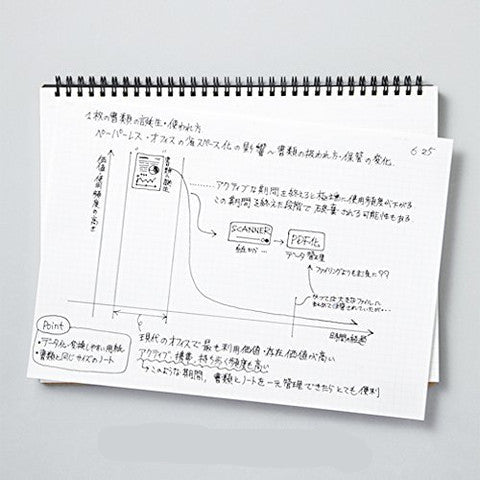 1枚の書類の誕生・使われ方
ペーパーレス・オフィスの省スペース化の影響〜書類の扱われ方・保管の変化
6.25
価値・使用頻度の高さ
書類の誕生
アクティブな期間を終えると極端に使用頻度が下がる
この期間を終えた段階で破棄される可能性もある
SCANNER
紙から…
PDF化
データ管理
ファイリングよりもお気に
かつては大きなファイルに
まとめて保管されていたが…
時間の経過
Point
・データ化・変換しやすい用紙
・書類と同じサイズのノート
現代のオフィスで最も利用価値・存在価値が高い
アクティブ 携帯・持ち歩く頻度も高い
このような期間、書類とノートを一元管理できたらとても便利